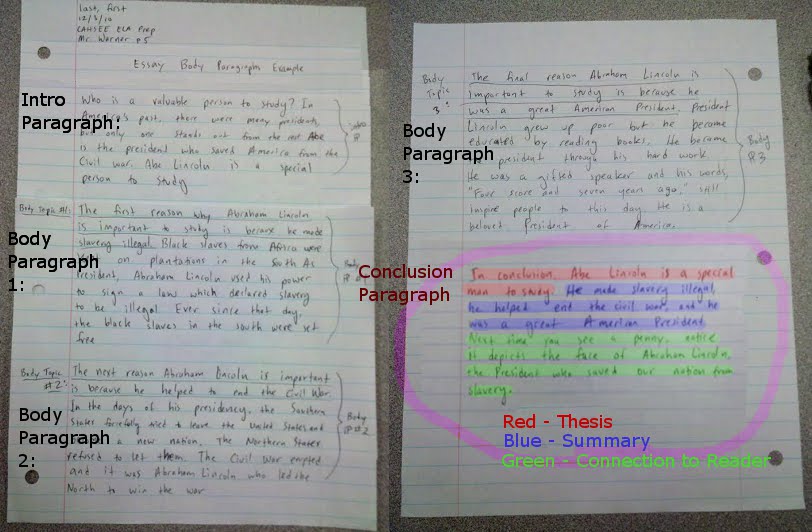 last, first
12/3/10
CAHSEE ELA Prep
Mr. Warner p5
Essay Body Paragraphs Example
Intro
Paragraph:
Who is a valuable person to study? In
America's past, there were many presidents
but only one stands out from the rest. Abe
is the president who saved America from the
Civil war. Abe Lincoln is a special
person to study
Body
Paragraph
1:
Body Topic #1:
The first reason why Abraham Lincoln
is important to study is because he made
slavery illegal. Black slaves from Africa were
on plantations in the South. As
President, Abraham Lincoln used his power
to sign a law which declared slavery
to be illegal. Ever since that day,
the black slaves in the south were set
free
Body
Body
Paragraph
2:
Body Topic
#2:
The next reason Abraham Lincoln is important
is because he helped to end the Civil War.
In the days of his presidency, the Southern
States forcefully tried to leave the United States and
a new nation. The Northern States
refused to let them. The Civil War erupted
and it was Abraham Lincoln who led the
North to win the war
Body
#2
Body
Paragraph
3:
Body
Topic
3:
The final reason Abraham Lincoln is
important to study is because he
was a great American President. President
Lincoln grew up poor but he became
educated by reading books. He became
president through his hard work.
He was a gifted speaker and his words,
"Four score and seven years ago," still
inspire people to this day. He is a
beloved President of America.
Body
#3
Conclusion
Paragraph
In conclusion, Abe Lincoln is a special
man to study. He made slavery illegal,
he helped end the civil war, and he
was a great American President.
Next time you see a penny, notice
it depicts the face of Abraham Lincoln,
the President who saved our nation from
slavery.
Red - Thesis
Blue - Summary
Green - Connection to Reader